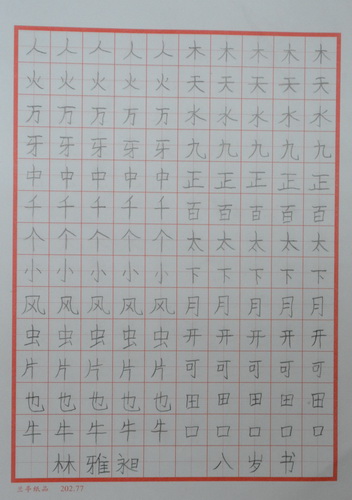 人人人人人木木木木木
火火火火火天天天天天
万万万万万水水水水水
牙牙牙牙牙九九九九九
中中中中中正正正正正
千千千千千百百百百百
个个个个个太太太太太
小小小小小下下下下下
风风风风风月月月月月
虫虫虫虫虫开开开开开
片片片片片可可可可可
也也也也也田田田田田
牛牛牛牛牛口口口口口
林雅昶 八岁书
兰亭纸品 202.77